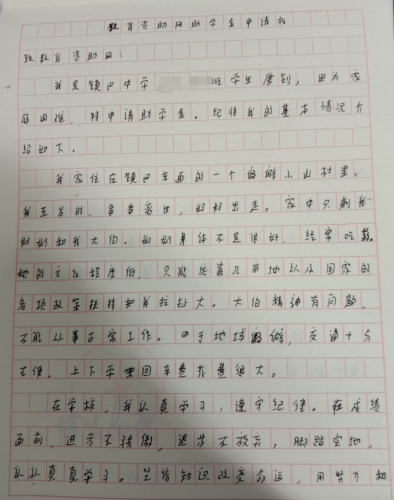 教育资助网助学金申请书
致教育资助网：
我是镇巴中学 班学生唐钊，因为家
庭困难，特申请助学金。现将我的基本情况介
绍如下。
我家住在镇巴东面的一个偏僻小山村里。
我五岁时，爸爸离世，妈妈出走。家中只剩我
奶奶和我大伯。奶奶身体不是很好，经常吃药。
她的文化程度低，只能依靠几亩地以及国家的
各项政策扶持把我拉扯大。大伯精神有问题，
不能从事正常工作。由于地域偏僻，交通十分
不便，上下学来回车费花费很大。
在学校，我认真学习，遵守纪律。在成绩
面前，进步不骄傲，退步不放弃，脚踏实地，
认认真真学习。坚信知识改变命运，用努力和